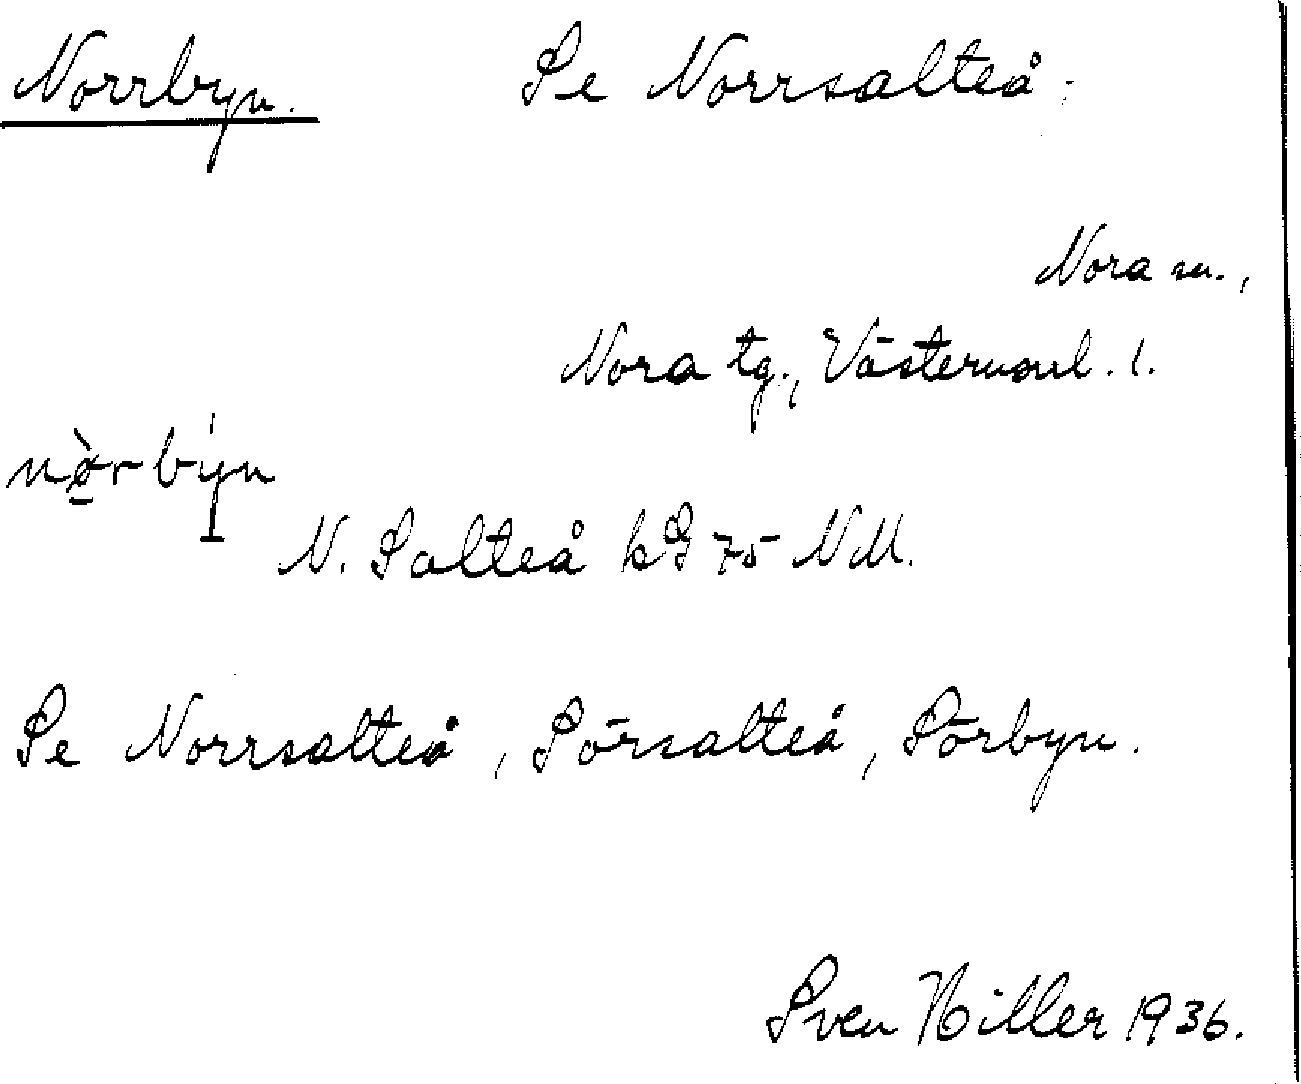 Norrbyn. Se Norrsalteå.
Nora sn.,
Nora tg., Västernorrl. l.
nòrbýn
N. Salteå kG 75 NM.
Se Norrsalteå, Sörsalteå, Sörbyn.
Sven Hiller 1936.